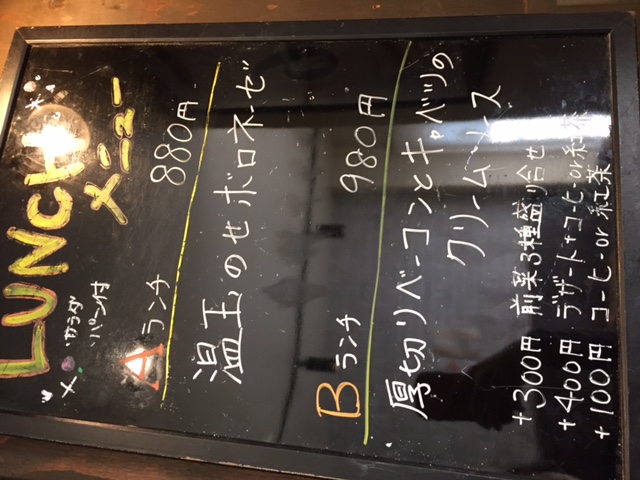 LUNCH
メニュー
サラダ
パン付
Aランチ 880円
温玉のせボロネーゼ
Bランチ 980円
厚切りベーコンとキャベツの
クリームソース
+300円 前菜3種盛り合せ
+400円 デザート+コーヒーor紅茶
+100円 コーヒーor紅茶